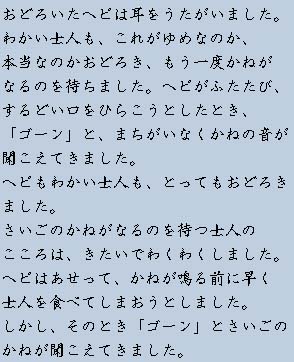 おどろいたヘビは耳をうたがいました。
わかい士人も、これがゆめなのか、
本当なのかおどろき、もう一度かねが
なるのを待ちました。ヘビがふたたび、
するどい口をひらこうとしたとき、
「ゴーン」と、まちがいなくかねの音が
聞こえてきました。
ヘビもわかい士人も、とってもおどろき
ました。
さいごのかねがなるのを待つ士人の
こころは、きたいでわくわくしました。
ヘビはあせって、かねが鳴る前に早く
士人を食べてしまおうとしました。
しかし、そのとき「ゴーン」とさいごの
かねが聞こえてきました。